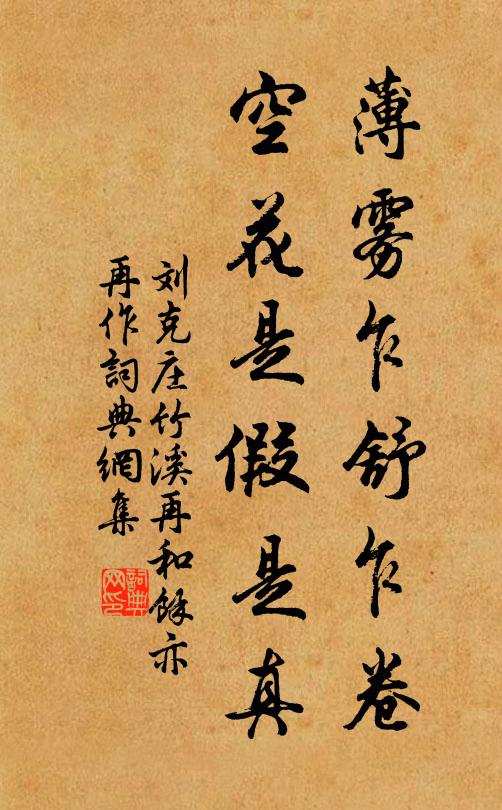 薄雾乍舒乍卷
空花是假是真
刘克庄竹溪再和馀亦
再作詞典網集
詞典
网印